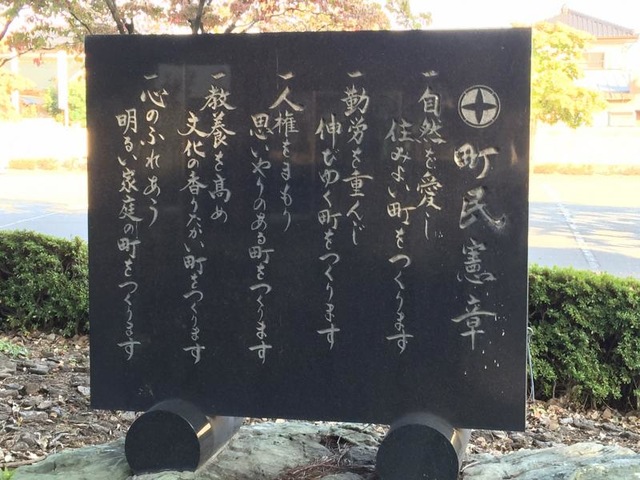 町民憲章
一自然を愛し
住みよい町をつくります
一勤労を重んじ
伸びゆく町をつくります
一人権をまもり
思いやりのある町をつくります
一教養を高め
文化の香りたかい町をつくります
一心のふれあう
明るい家庭の町をつくります